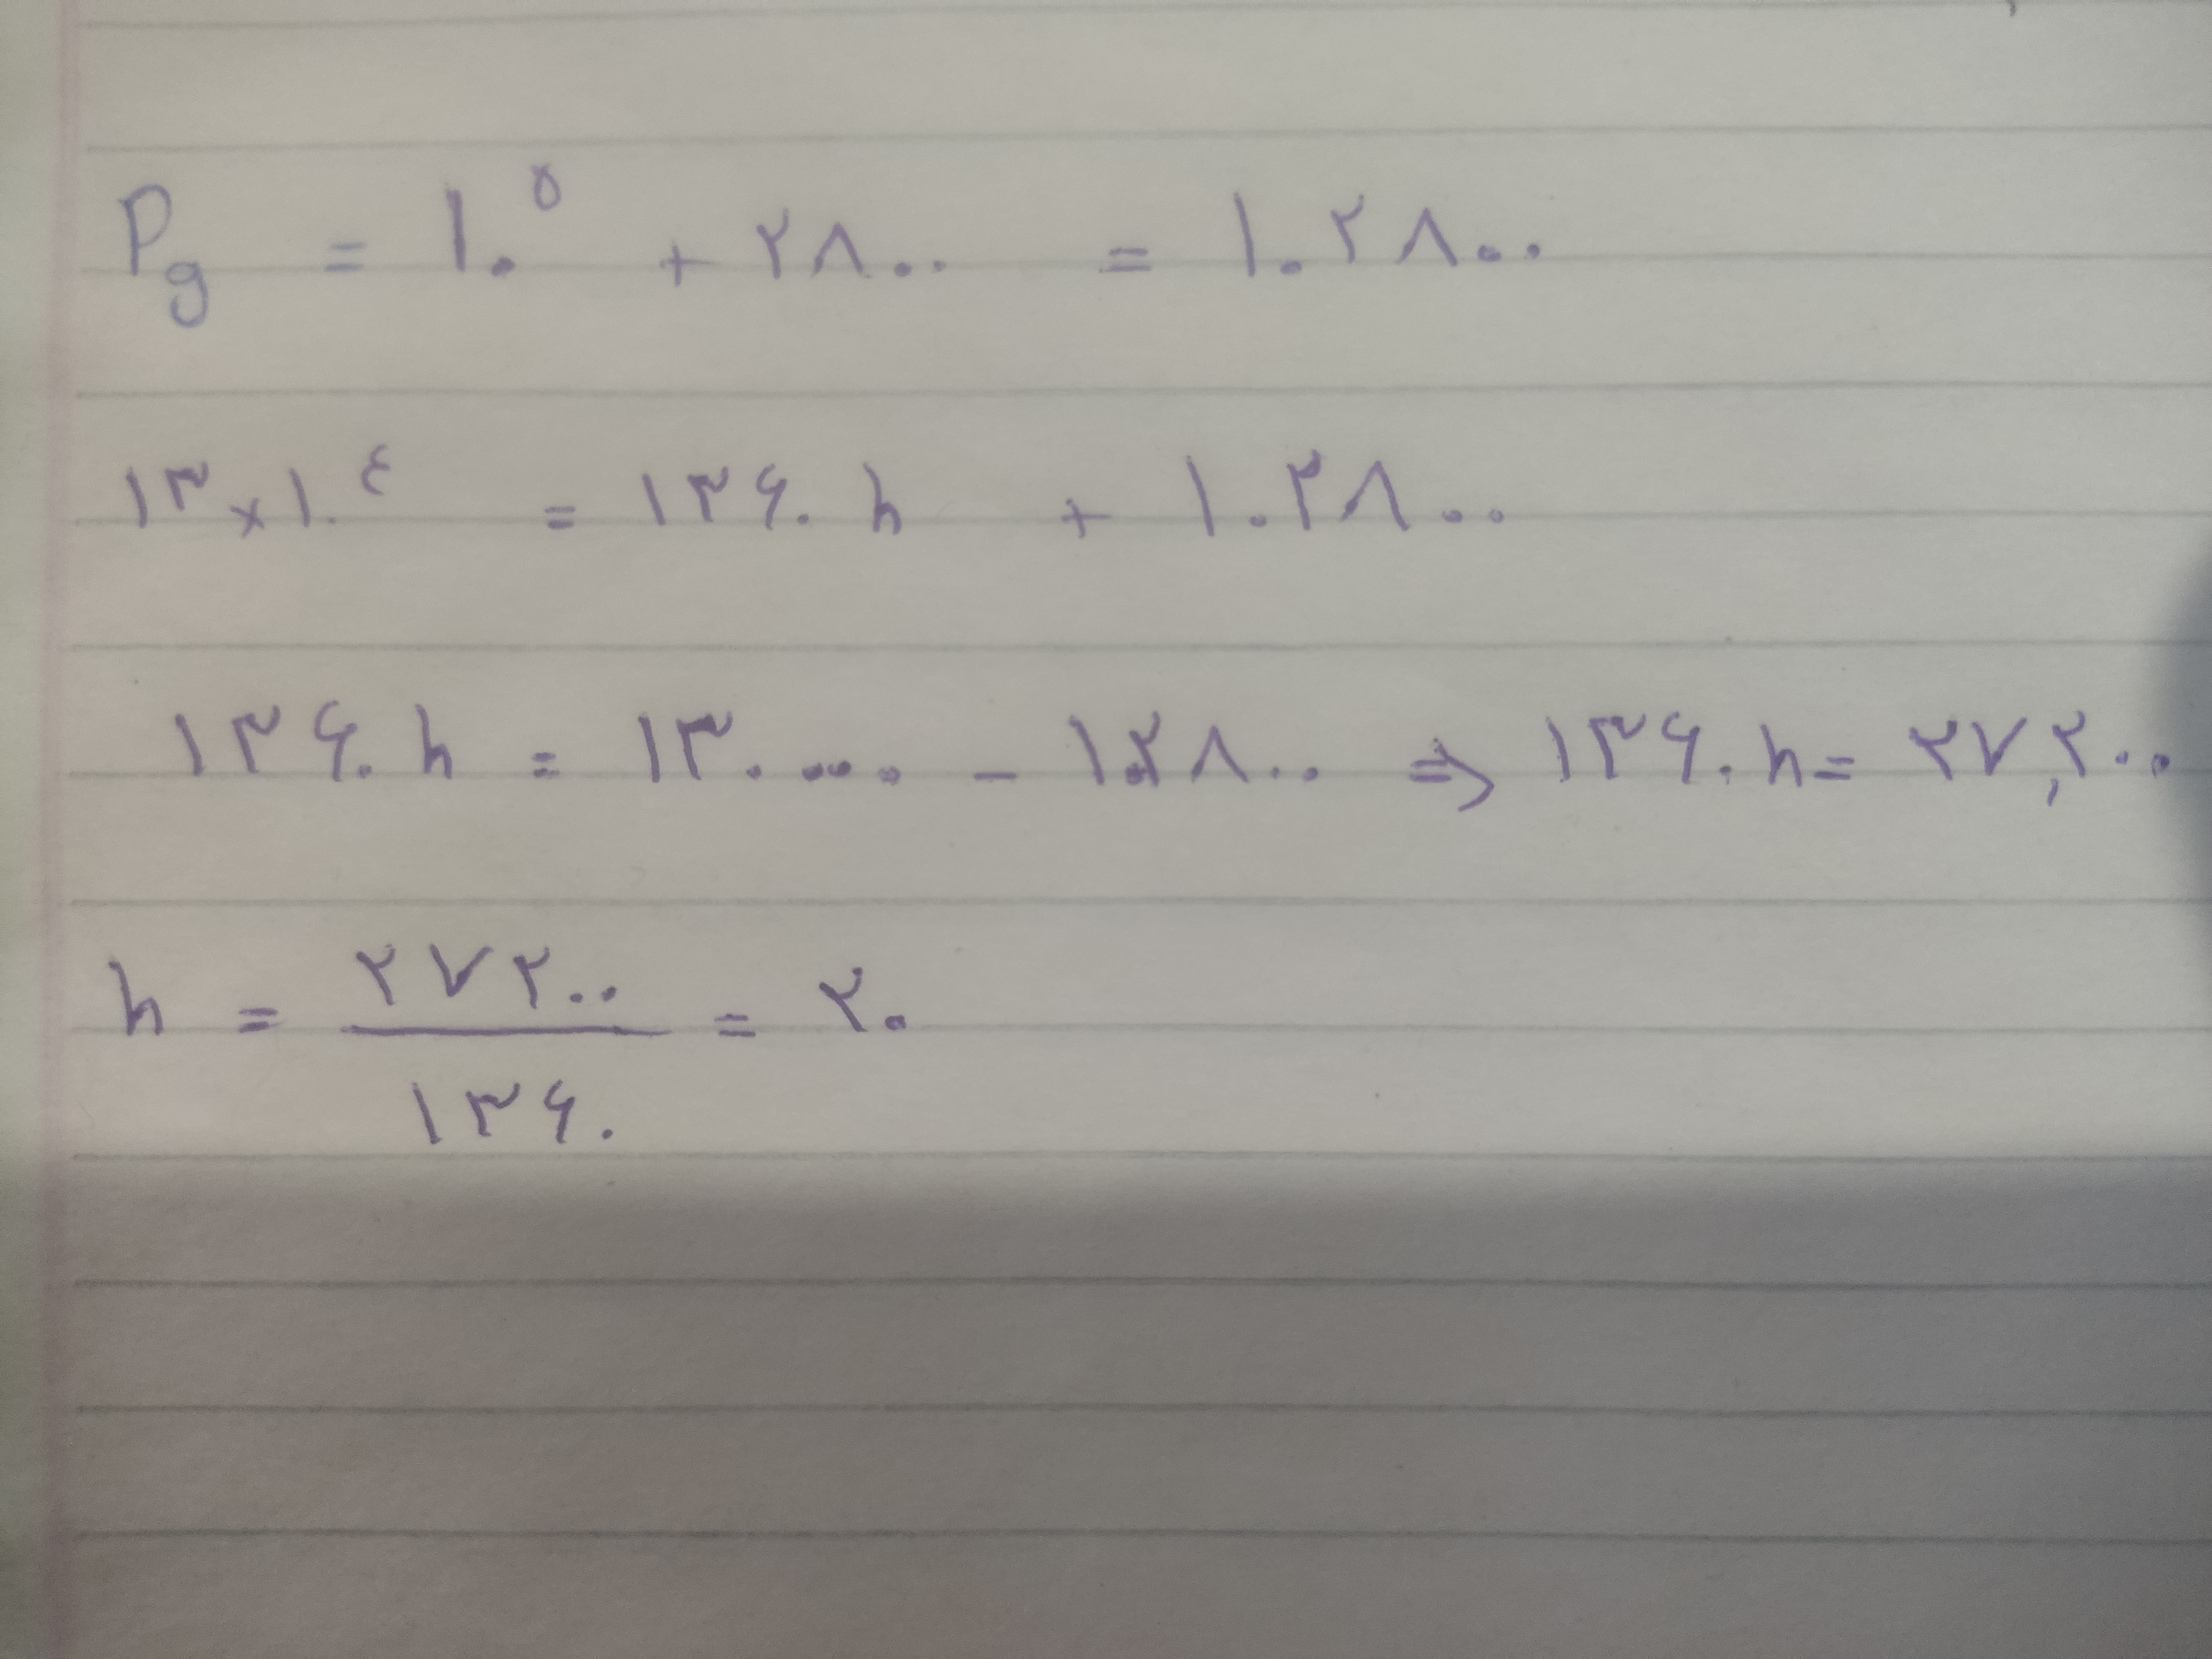 Pg = ۱۰^۵ + ۲۸۰۰ = ۱۰۲۸۰۰
۱۳×۱۰^٤ = ۱۳۶۰ h + ۱۰۲۸۰۰
۱۳۶۰ h = ۱۳۰۰۰۰ - ۱۰۲۸۰۰ ⇒ ۱۳۶۰ h = ۲۷,۲۰۰
h = ۲۷۲۰۰ / ۱۳۶۰ = ۲۰